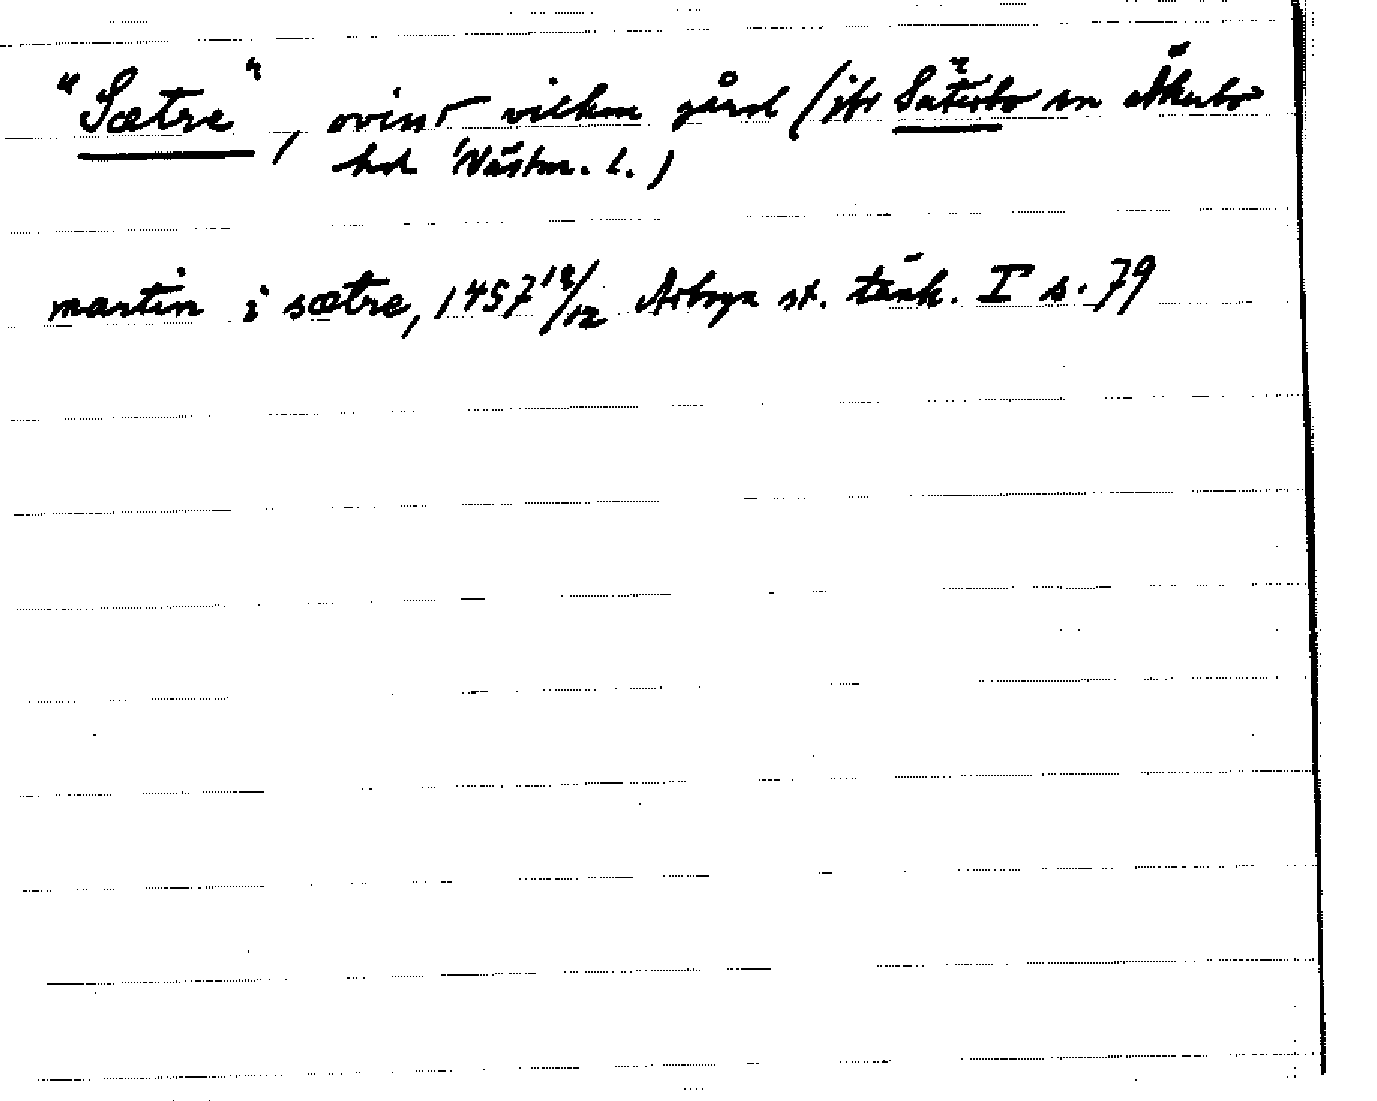 "Sætre", ovisst vilken gård (jfr Säterbo sn Åkerbo
hd Västm. l.)
martin i sætre, 1457 12/12 Arboga st. tänk. I s. 79